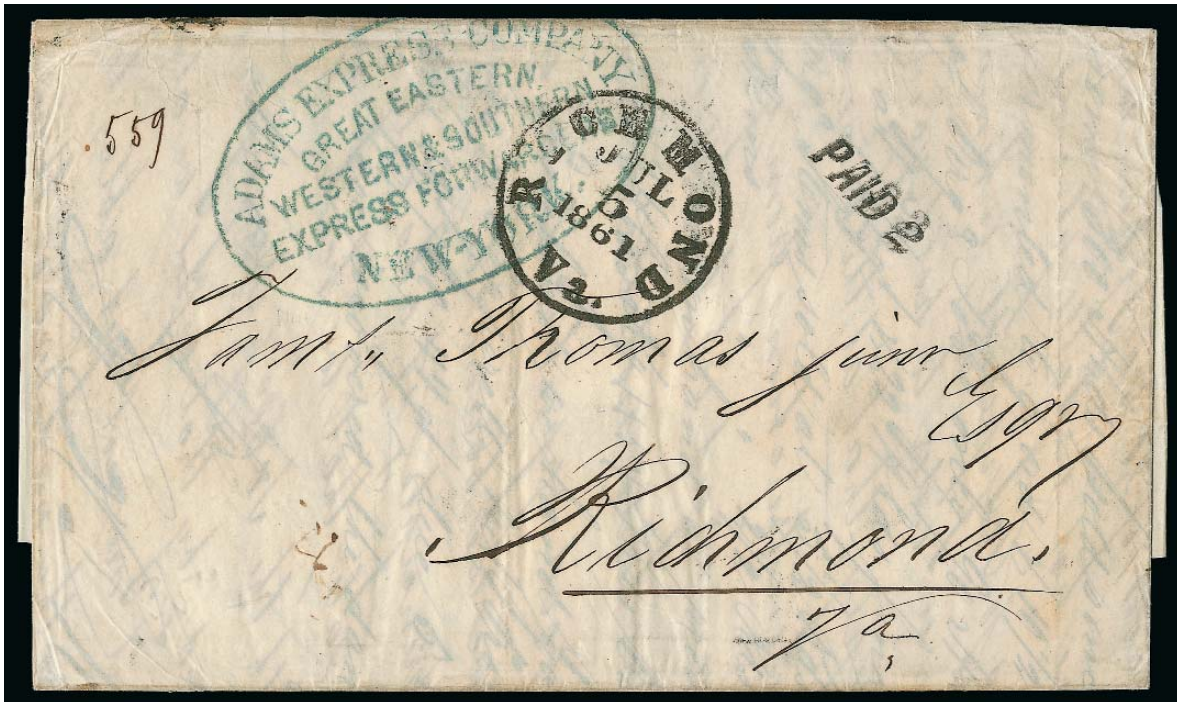 ADAMS EXPRESS COMPANY
GREAT EASTERN,
WESTERN & SOUTHERN
EXPRESS FORWARDERS
NEW-YORK.
559
RICHMOND
JUL
5
1861
Va.
PAID 2
Thomas junr
Esqr
Richmond.
Va.